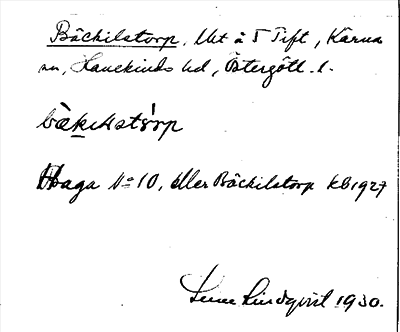 Bäckilstorp, Utt å 5 Tift, Kärna
sn, Hanekinds hd, Östergötl. l.
bækilstórp
Haga No 10, eller Bäckilstorp kb 1927
Lindqvist 1930.